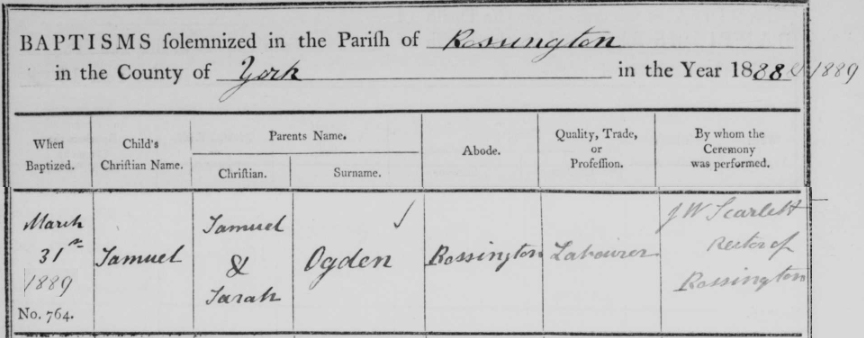 BAPTISMS solemnized in the Parish of Rossington
in the County of York in the Year 1888 & 1889
When Baptized. Child's Christian Name. Parents Name. Christian. Surname. Abode. Quality, Trade, or Profession. By whom the Ceremony was performed.
March
31st
1889
No. 764.
Samuel
Samuel
&
Sarah
Ogden
Rossington
Labourer
J W Scarlett
Rector of
Rossington